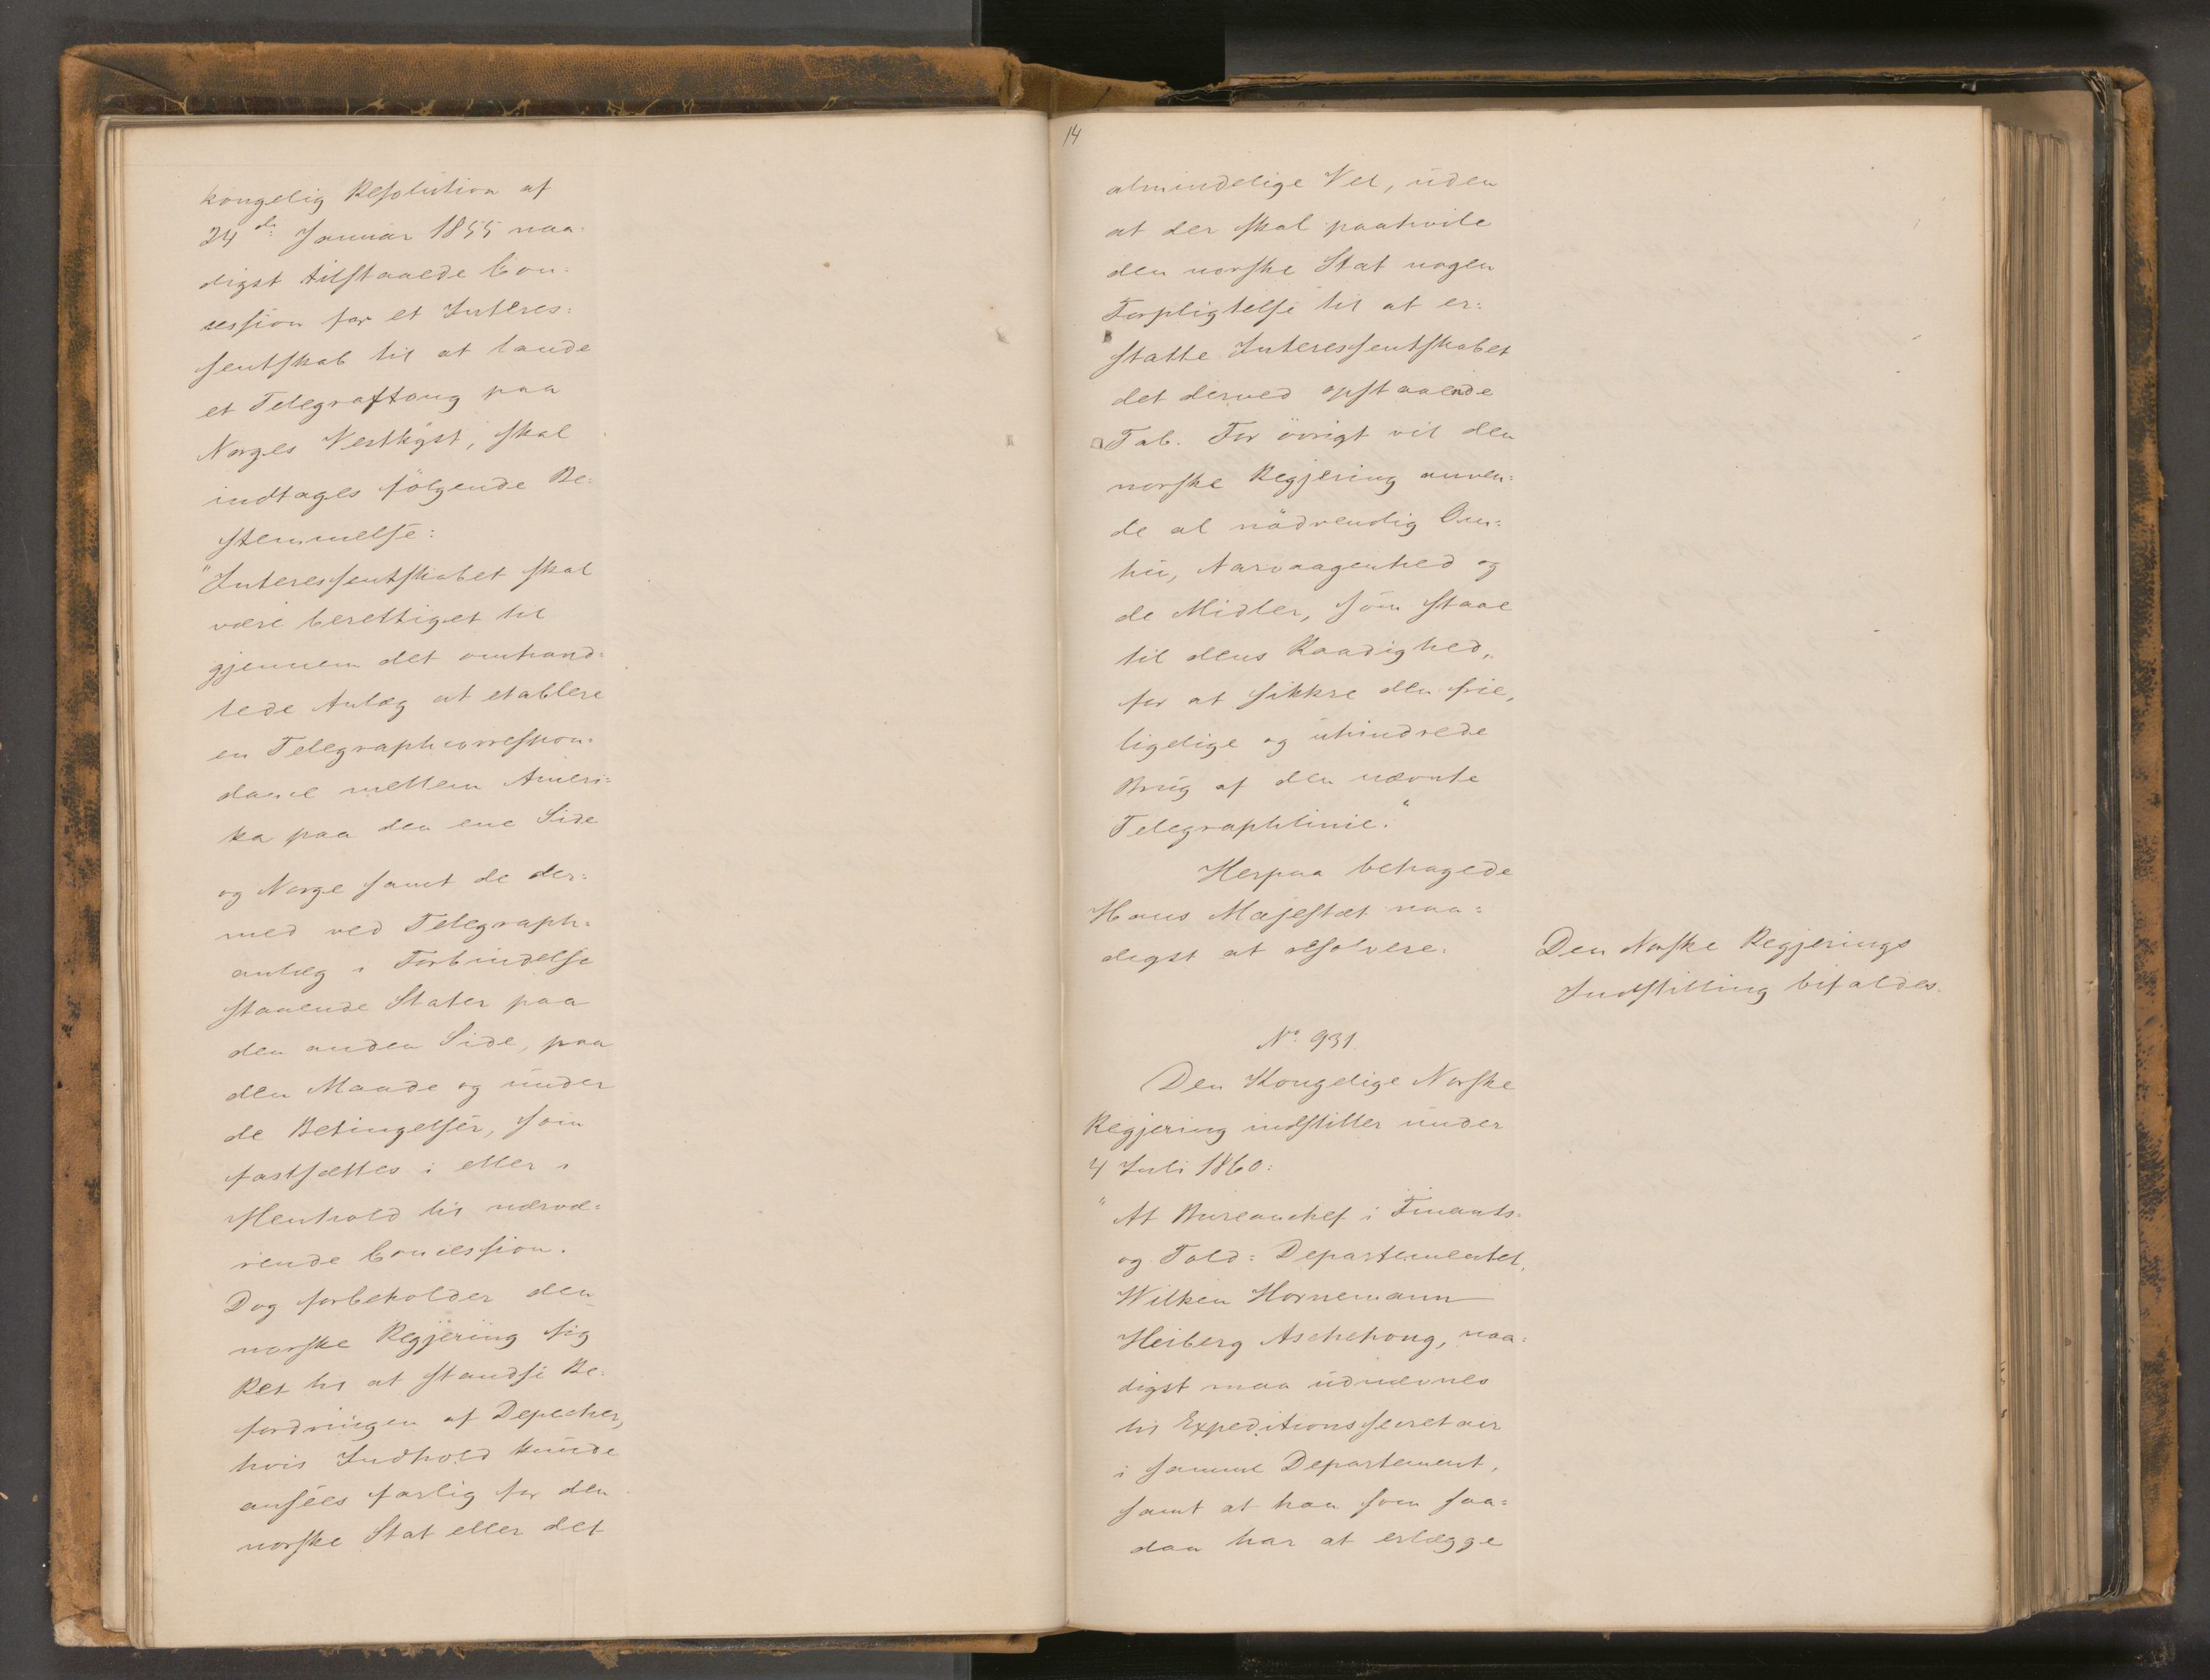 kongelig Resolution af
24de Januar 1855 naa-
digst tilstaaede Con-
cession for et Interes-
sentskab til at lande
et Telegraftoug paa
Norges Vestkyst, skal
indtages følgende Be-
stemmelse:
"Interessentskabet skal
være berettiget til
gjennem det omhand-
lede Anlæg at etablere
en Telegraphcorrespon-
dance mellem Ameri-
ka paa den ene Side
og Norge samt de der-
med ved Telegraph-
anlæg i Forbindelse
staaende Stater paa
den anden Side, paa
den Maade og under
de Betingelser, som
fastsættes i eller i
Henhold til nærvæ-
rende Concession.
Dog forbeholder den
norske Regjering sig
Ret til at standse Be-
fordringen af Depecher,
hvis Indhold kunde
ansees farlig for den
norske Stat eller det
14
almindelige Vel, uden
at der skal paahvile
den norske Stat nogen
Forpligtelse til at er-
statte Interessentskabet
det derved opstaaende
Tab. For øvrigt vil den
norske Regjering anven-
de al nødvendig Om-
hu, Aarvaagenhed og
de Midler, som staae
til dens Raadighed,
for at sikkre den frie,
ligelige og uhindrede
Brug af den nævnte
Telegraphlinie."
Herpaa behagede
Hans Majestæt naa-
digst at resolvere:
Den Norske Regjerings
Indstilling bifaldes.
No 931
Den Kongelige Norske
Regjering indstiller under
4 Juli 1860:
"At Bureauchef i Finants-
og Told-Departementet,
Wilken Hornemann
Heiberg Aschehoug, naa-
digst maa udnævnes
til Expeditionssecretair
i samme Departement,
samt at han som saa-
dan har at erlægge